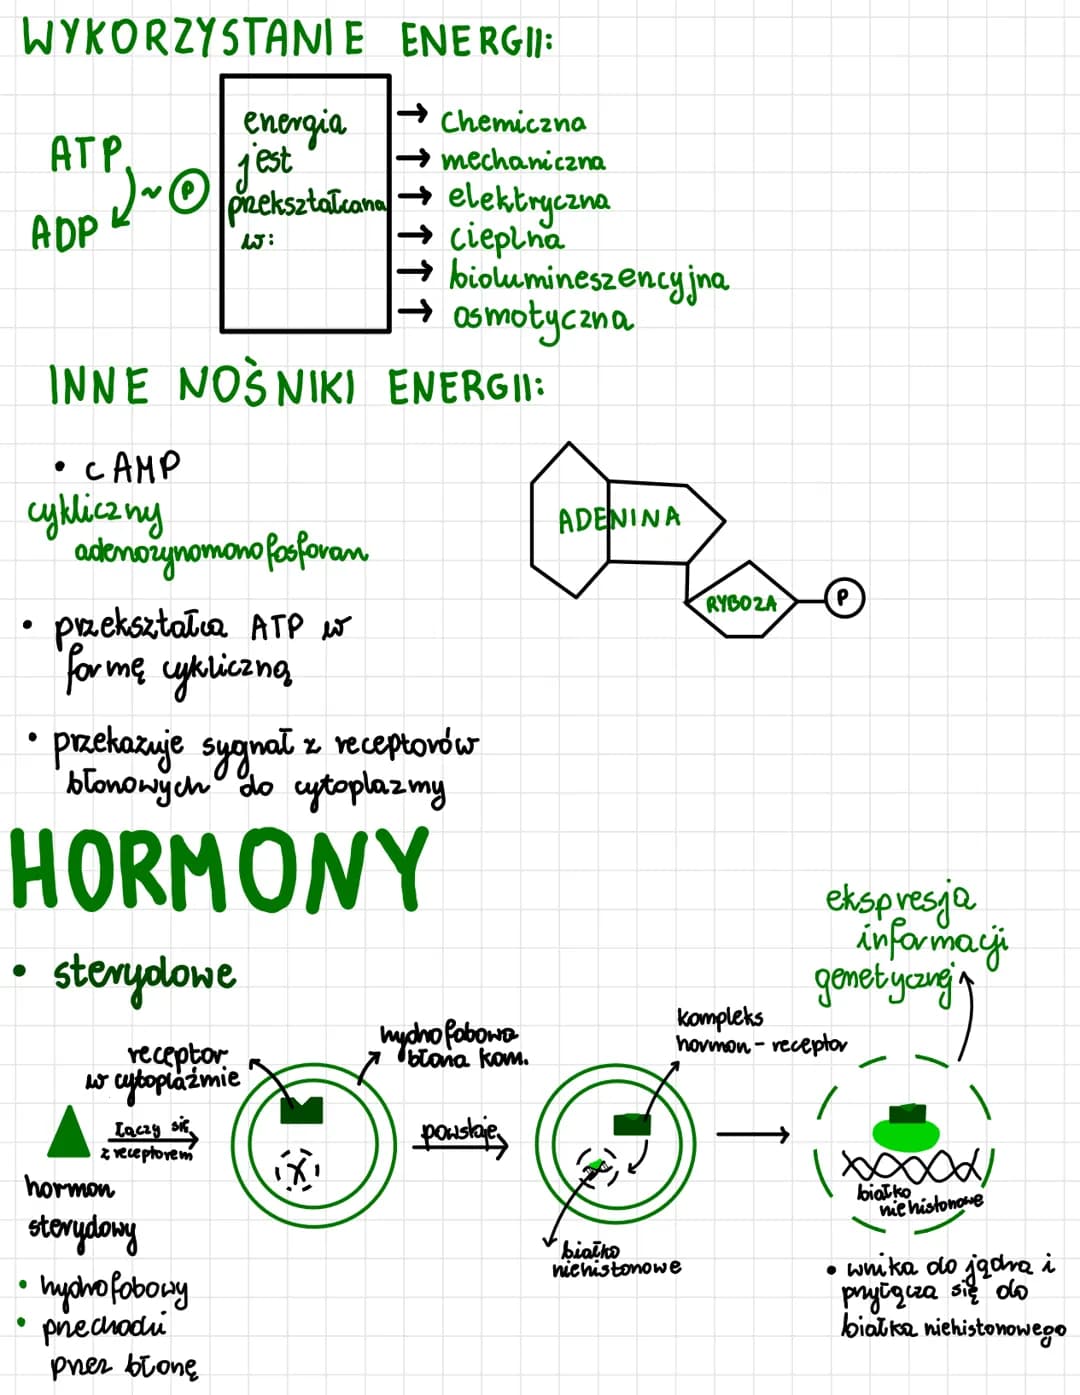 WYKORZYSTANIE ENERGII:
ATP
ADP
~ P
energia
jest
przekształcana
w:
→ Chemiczna
→ mechaniczna
→ elektryczna
→ cieplna
→ biolumineszencyjna
→ osmotyczna
INNE NOŚNIKI ENERGII:
• cAMP
cykliczny
adenozynomonofosforan
ADENINA
RYBOZA
P
• przekształca ATP w
formę cykliczną
• przekazuje sygnał z receptorów
błonowych do cytoplazmy
HORMONY
• sterydowe
receptor
w cytoplaźmie
hydrofobowa
błona kom.
łączy się
z receptorem
hormon
sterydowy
• hydrofobowy
• przechodzi
przez błonę
powstaje
kompleks
hormon - receptor
białko
niehistonowe
ekspresja
informacji
genetycznej
białko
niehistonowe
• wnika do jądra i
przyłącza się do
białka niehistonowego